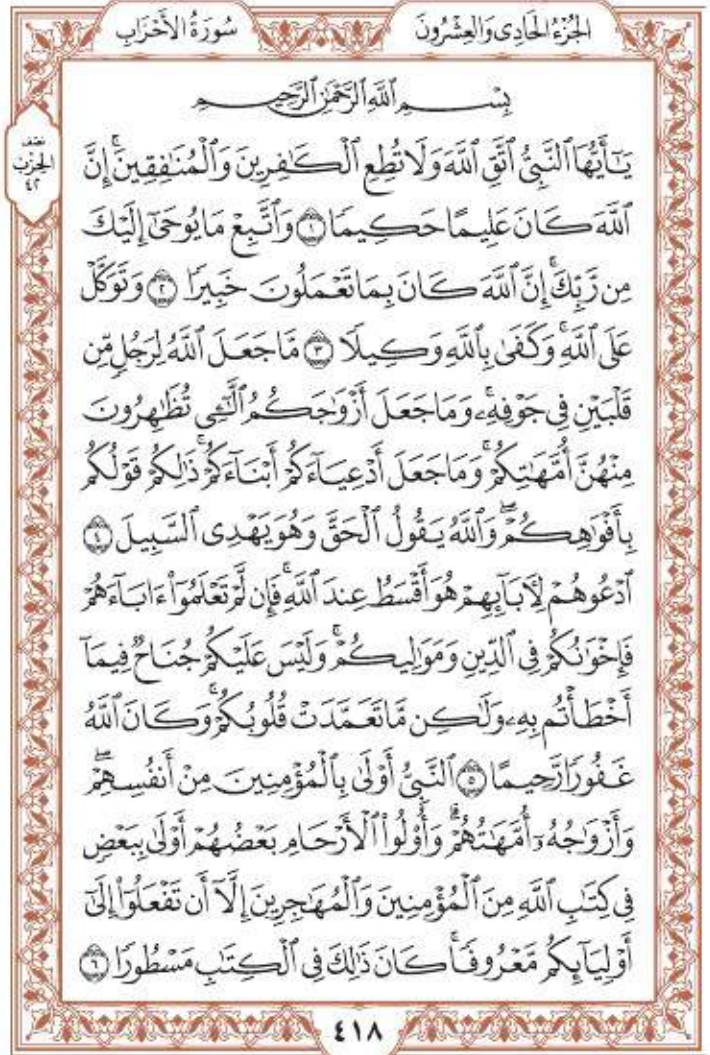 الجُزْءُ الحَادِى وَالعِشْرُونَ
سُورَةُ الأَحْزَابِ
بِسْمِ ٱللَّهِ ٱلرَّحْمَٰنِ ٱلرَّحِيمِ
يَٰٓأَيُّهَا ٱلنَّبِىُّ ٱتَّقِ ٱللَّهَ وَلَا تُطِعِ ٱلْكَٰفِرِينَ وَٱلْمُنَٰفِقِينَۗ إِنَّ
ٱللَّهَ كَانَ عَلِيمًا حَكِيمًا ١ وَٱتَّبِعْ مَا يُوحَىٰٓ إِلَيْكَ
مِن رَّبِّكَۚ إِنَّ ٱللَّهَ كَانَ بِمَا تَعْمَلُونَ خَبِيرًا ٢ وَتَوَكَّلْ
عَلَى ٱللَّهِۚ وَكَفَىٰ بِٱللَّهِ وَكِيلًا ٣ مَّا جَعَلَ ٱللَّهُ لِرَجُلٍ مِّن
قَلْبَيْنِ فِى جَوْفِهِۦۚ وَمَا جَعَلَ أَزْوَٰجَكُمُ ٱلَّٰٓـِٔى تُظَٰهِرُونَ
مِنْهُنَّ أُمَّهَٰتِكُمْۚ وَمَا جَعَلَ أَدْعِيَآءَكُمْ أَبْنَآءَكُمْۚ ذَٰلِكُمْ قَوْلُكُم
بِأَفْوَٰهِكُمْۖ وَٱللَّهُ يَقُولُ ٱلْحَقَّ وَهُوَ يَهْدِى ٱلسَّبِيلَ ٤
ٱدْعُوهُمْ لِءَابَآئِهِمْ هُوَ أَقْسَطُ عِندَ ٱللَّهِۚ فَإِن لَّمْ تَعْلَمُوٓا۟ ءَابَآءَهُمْ
فَإِخْوَٰنُكُمْ فِى ٱلدِّينِ وَمَوَٰلِيكُمْۚ وَلَيْسَ عَلَيْكُمْ جُنَاحٌ فِيمَآ
أَخْطَأْتُم بِهِۦ وَلَٰكِن مَّا تَعَمَّدَتْ قُلُوبُكُمْۚ وَكَانَ ٱللَّهُ
غَفُورًا رَّحِيمًا ٥ ٱلنَّبِىُّ أَوْلَىٰ بِٱلْمُؤْمِنِينَ مِنْ أَنفُسِهِمْۖ
وَأَزْوَٰجُهُۥٓ أُمَّهَٰتُهُمْۗ وَأُو۟لُوا۟ ٱلْأَرْحَامِ بَعْضُهُمْ أَوْلَىٰ بِبَعْضٍ
فِى كِتَٰبِ ٱللَّهِ مِنَ ٱلْمُؤْمِنِينَ وَٱلْمُهَٰجِرِينَ إِلَّآ أَن تَفْعَلُوٓا۟ إِلَىٰٓ
أَوْلِيَآئِكُم مَّعْرُوفًاۚ كَانَ ذَٰلِكَ فِى ٱلْكِتَٰبِ مَسْطُورًا ٦
نصف
الحزب
٤٢
٤١٨